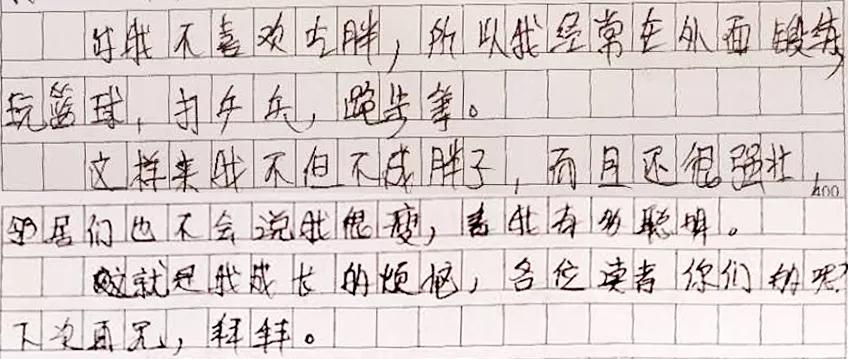 我不喜欢长胖，所以我经常在外面锻练，
玩篮球，打乒乓，跑步等。
这样来我不但不成胖子，而且还很强壮，
400
邻居们也不会说我很瘦，我有多聪明。
这就是我成长的烦恼，各位读者你们的呢？
下次再见，拜拜。